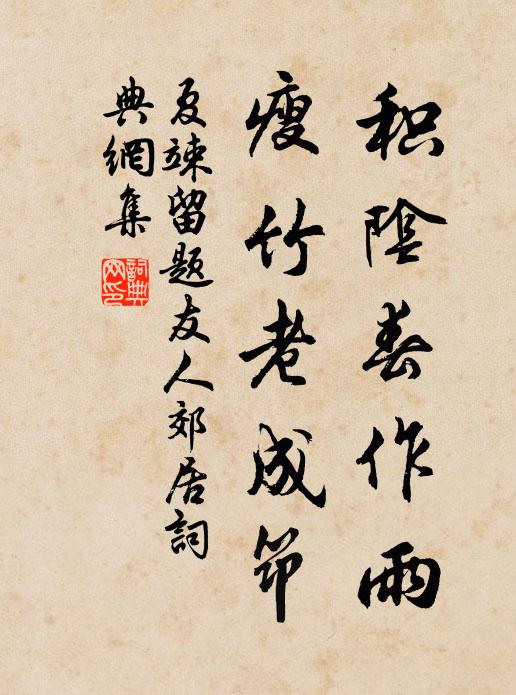 积陰春作雨
瘦竹老成节
夏竦留题友人郊居詞
典網集
詞典
网印